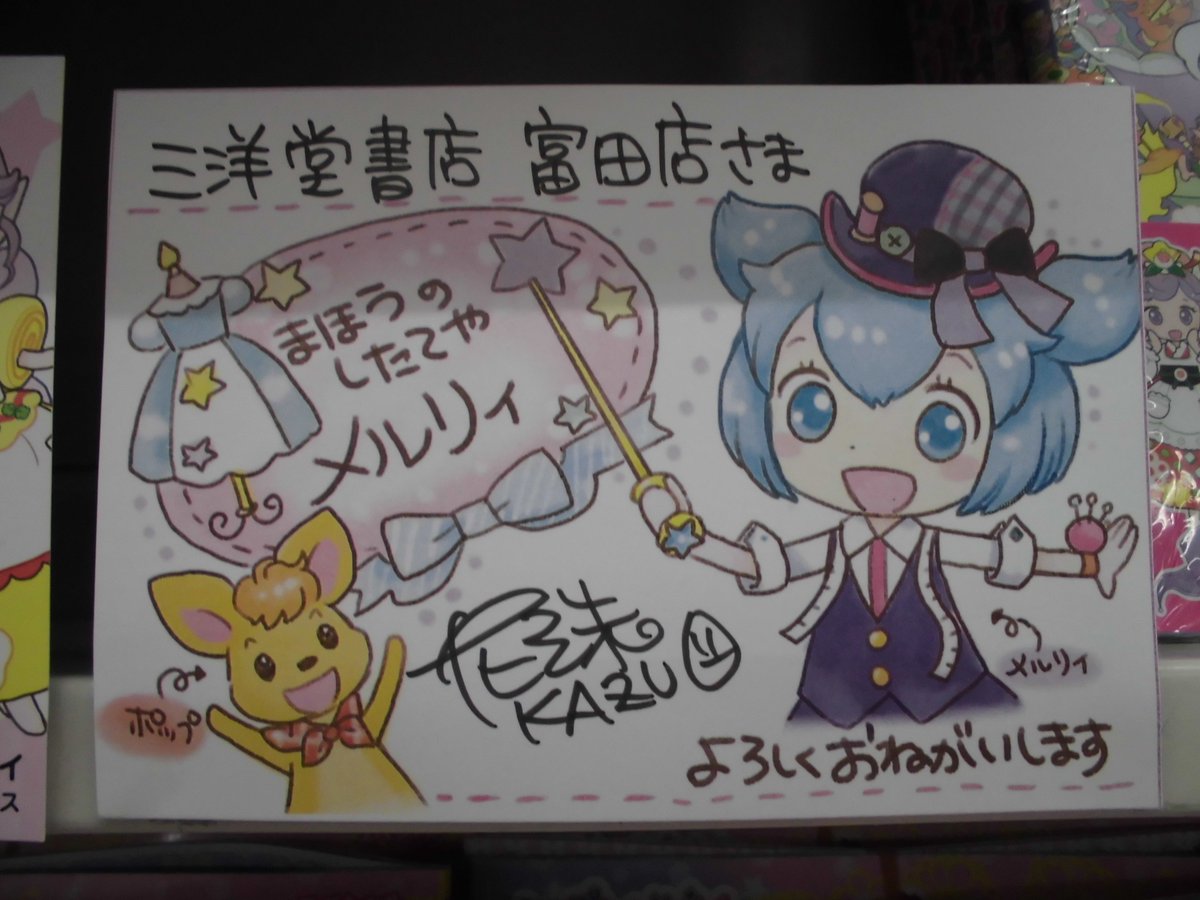 三洋堂書店 富田店さま
まほうの
したてや
メルリィ
KAZU
メルリィ
ポップ
よろしくおねがいします
イ
ス